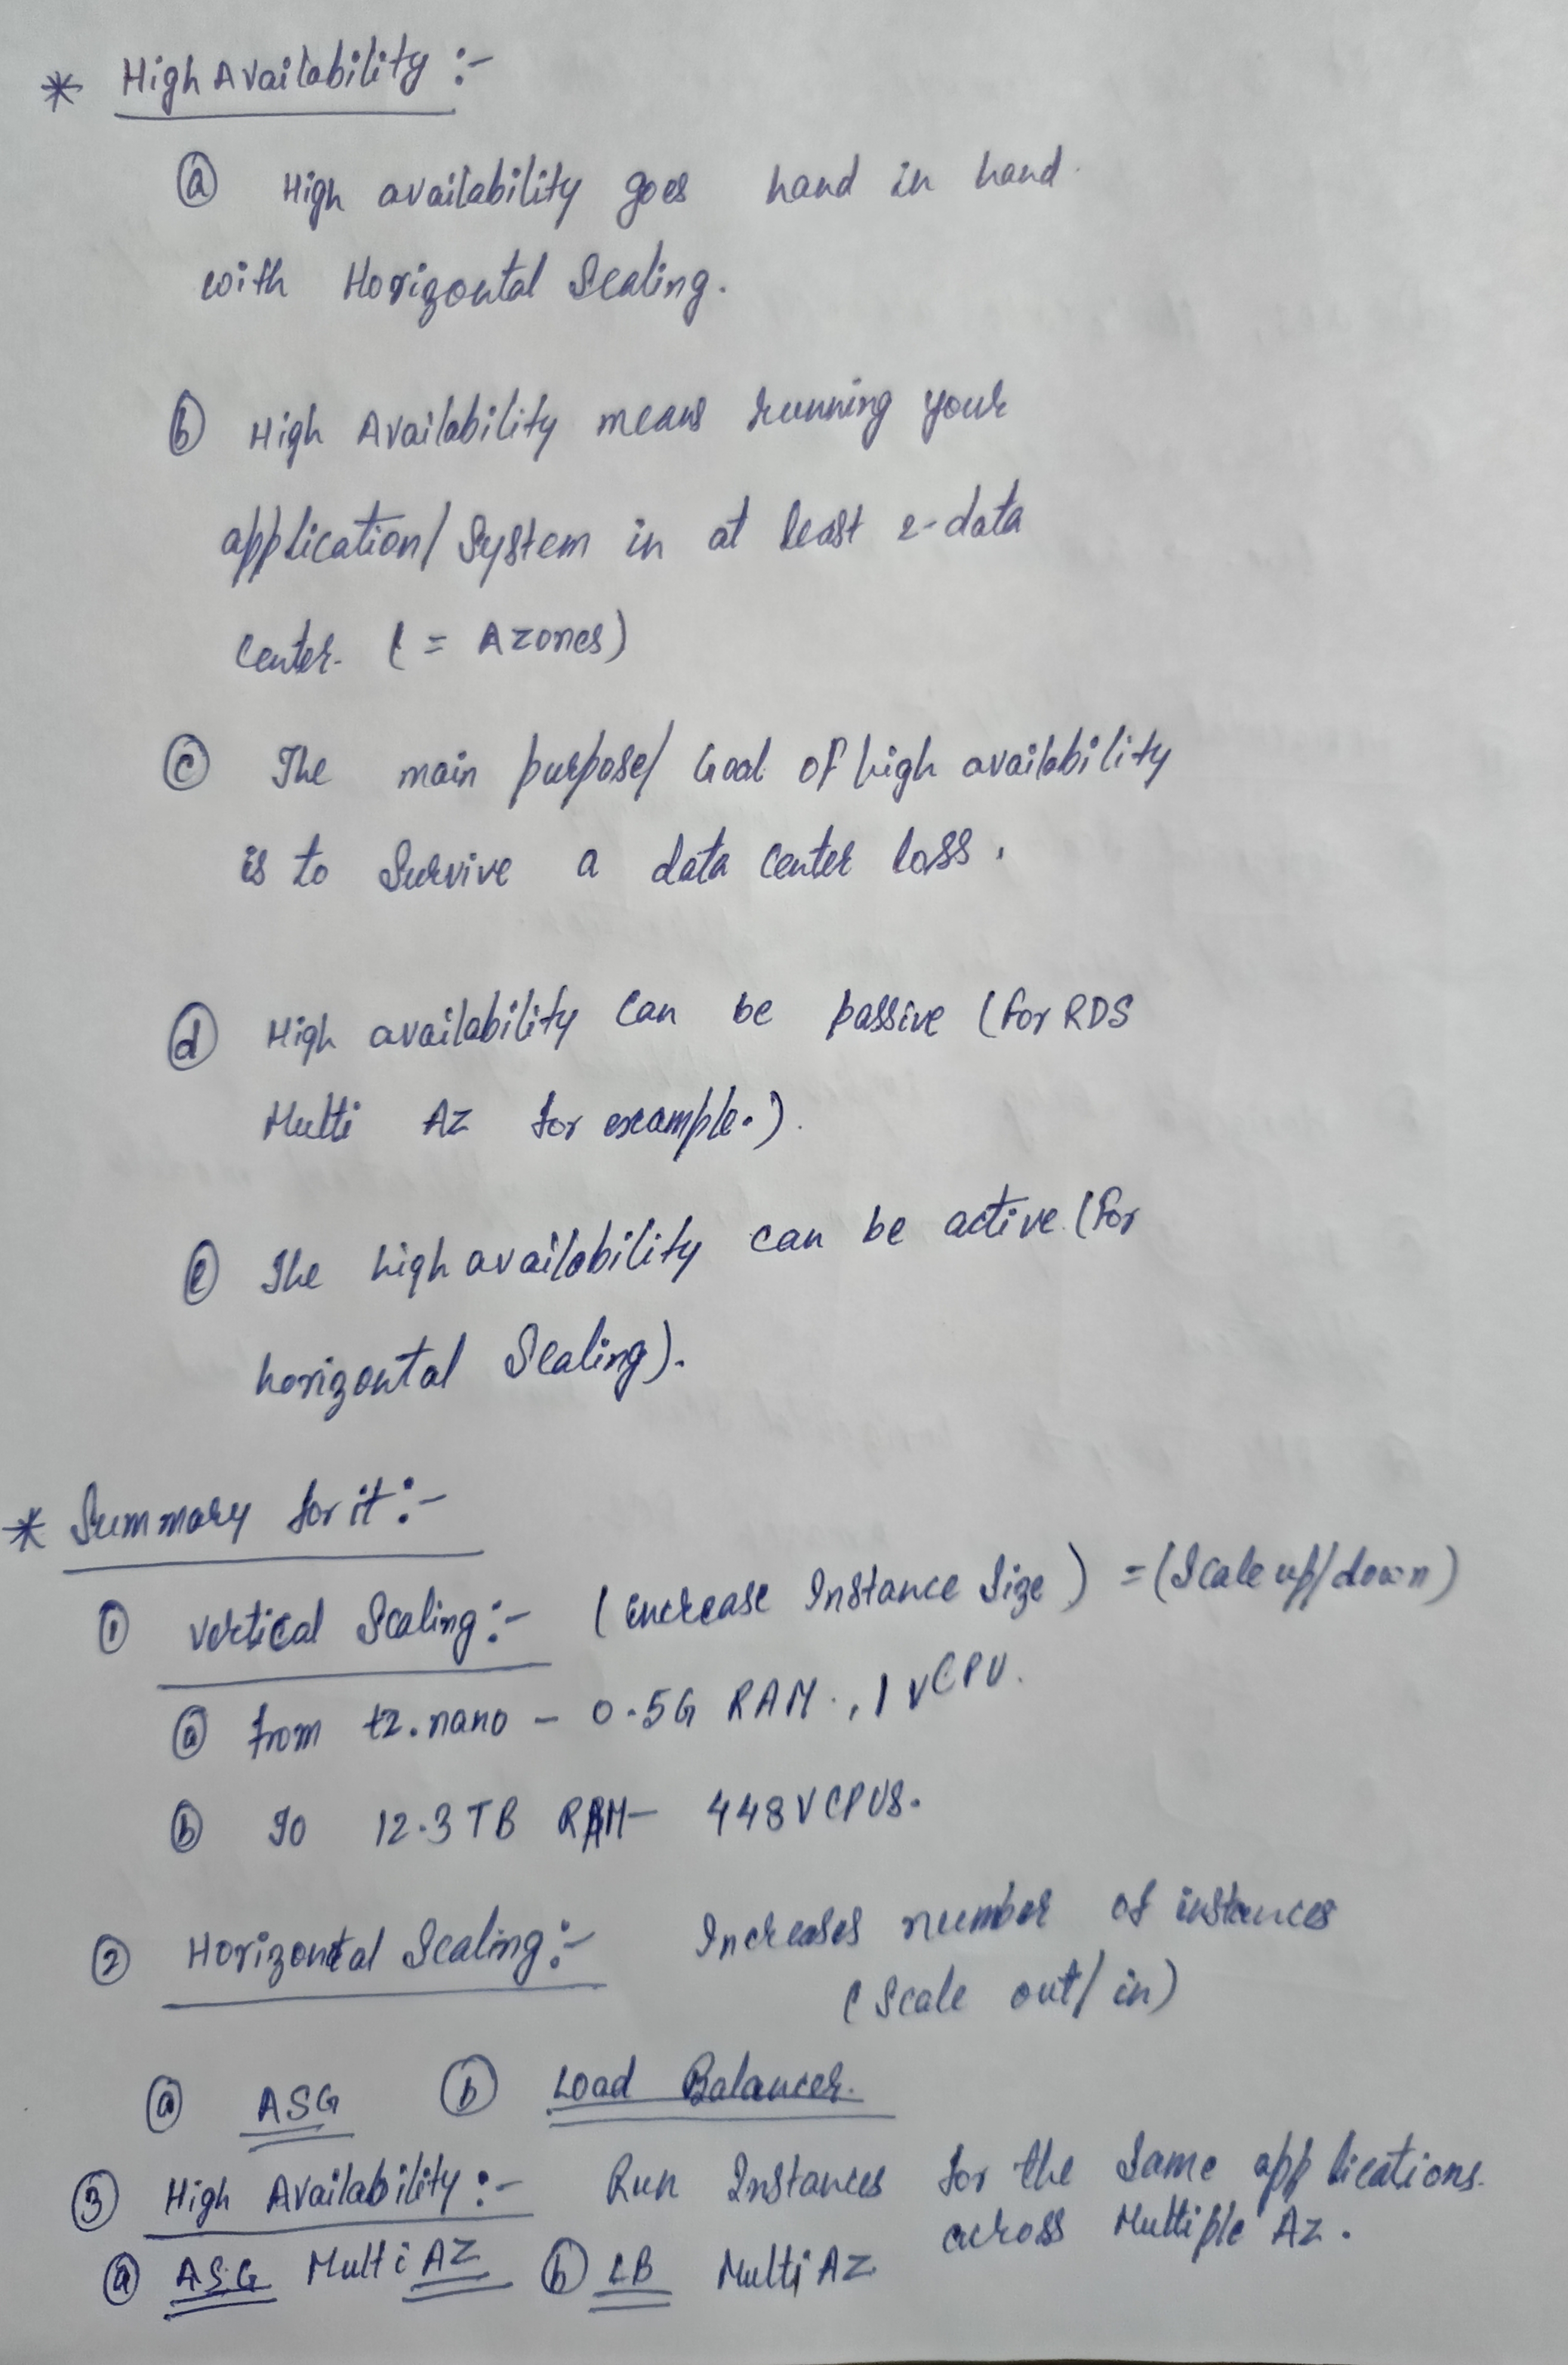 * High Availability :-
ⓐ High availability goes hand in hand
with Horizontal Scaling.
ⓑ High Availability means running your
application/System in at least 2-data
Center. ( = AZones)
ⓒ The main purpose/Goal of high availability
is to Survive a data Center loss.
ⓓ High availability Can be passive (for RDS
Multi AZ for example.).
ⓔ The high availability can be active (for
horizontal Scaling).
* Summary for it :-
① Vertical Scaling :- (increase Instance Size) = (Scale up/down)
ⓐ from t2.nano - 0.5G RAM., 1 vCPU.
ⓑ To 12.3 TB RAM - 448 VCPUS.
② Horizontal Scaling :- Increases number of instances
(Scale out/in)
ⓐ ASG ⓑ Load Balancer.
③ High Availability :- Run Instances for the Same applications.
across Multiple AZ.
ⓐ ASG Multi AZ ⓑ LB Multi AZ